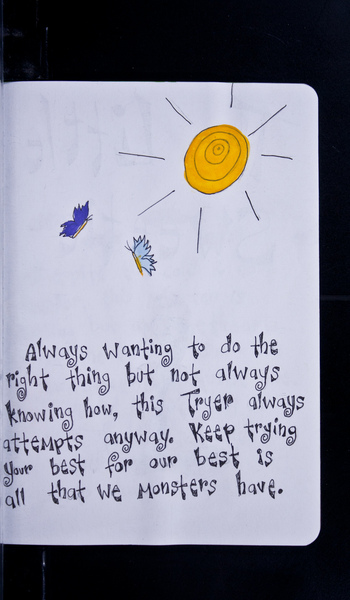 Always wanting to do the
right thing but not always
knowing how, this Tryer always
attempts anyway. Keep trying
your best for our best is
all that we monsters have.